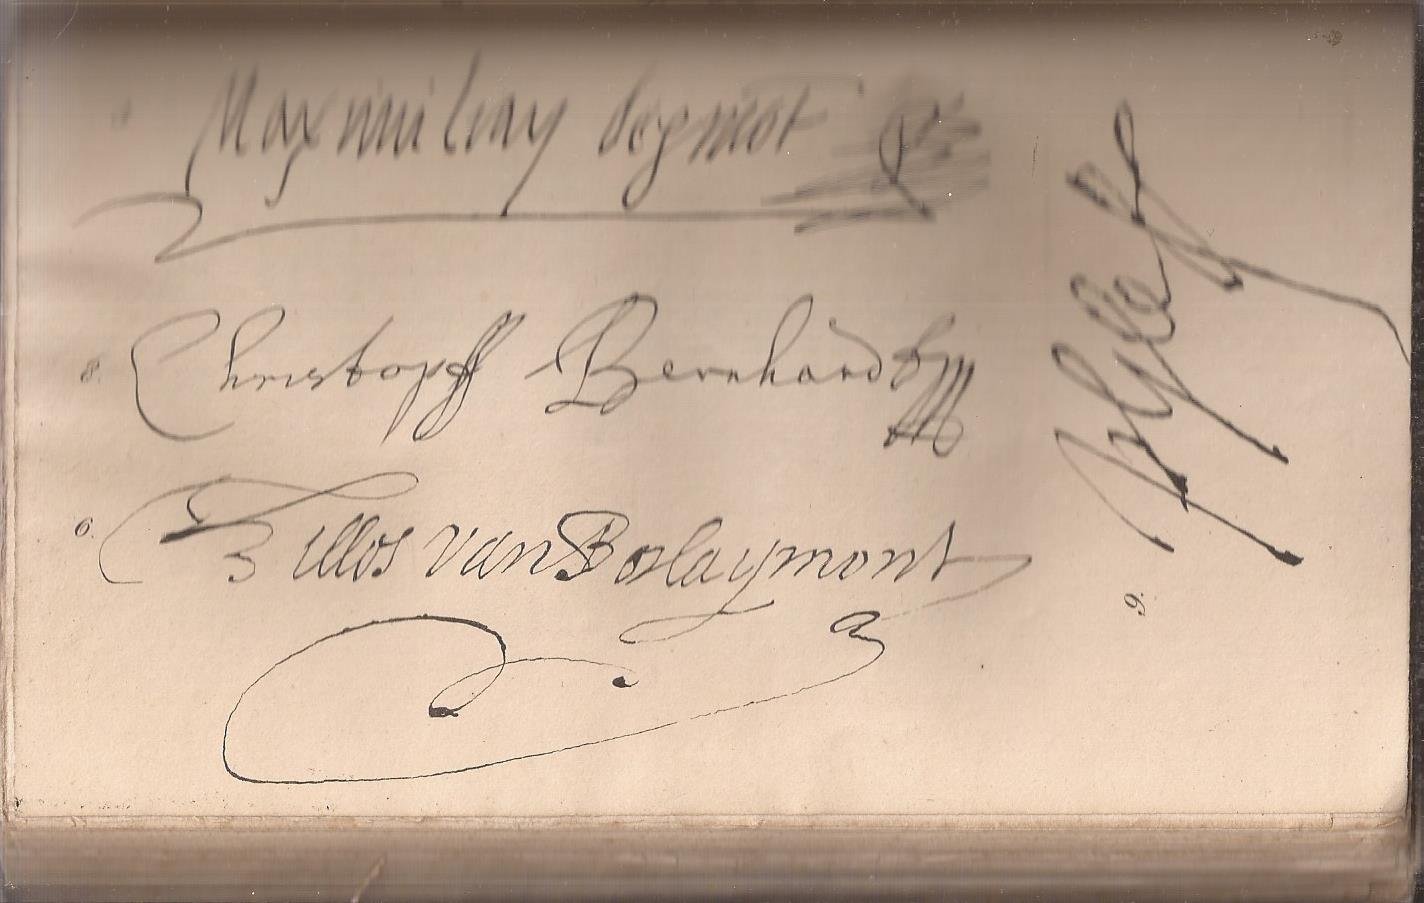 Maxmiliay degmot
8. Christopff Bernhard
6. Zillos van Borlaymont
9.